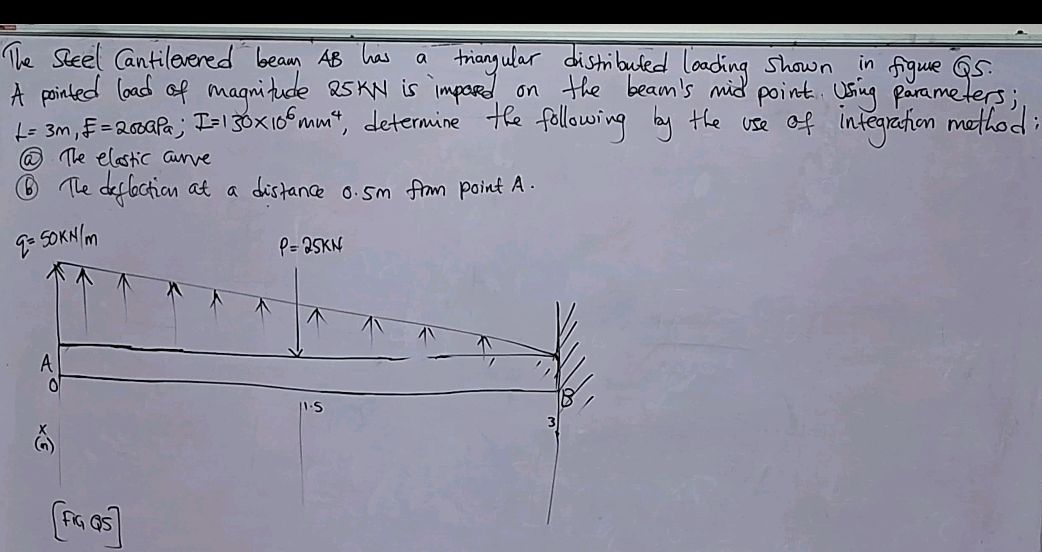 The Steel Cantilevered beam AB has a triangular distributed loading shown in figure Q5.
A pointed load of magnitude 25KN is imposed on the beam's mid point. Using parameters;
L= 3m, E=200GPa; I=130x10⁶mm⁴, determine the following by the use of integration method:
(a) The elastic curve
(b) The deflection at a distance 0.5m from point A.
q= 50KN/m
P= 25KN
A
0
B
1.5
3
x
(m)
[FIG Q5]